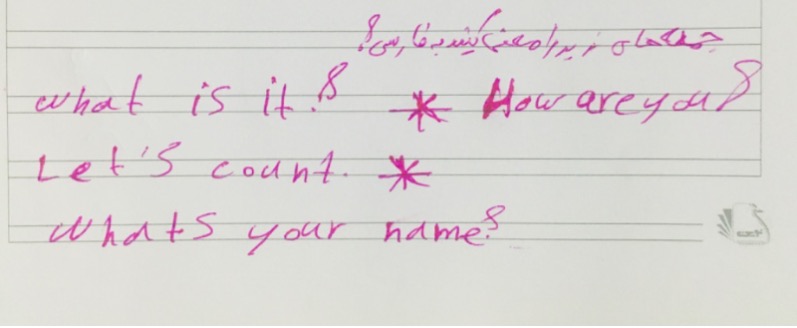 جمله های زیر را معنی کنید به فارسی؟
what is it? * How are you?
Let's count. *
whats your name?